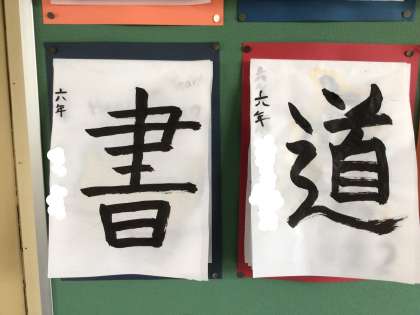 書
六年
道
六年